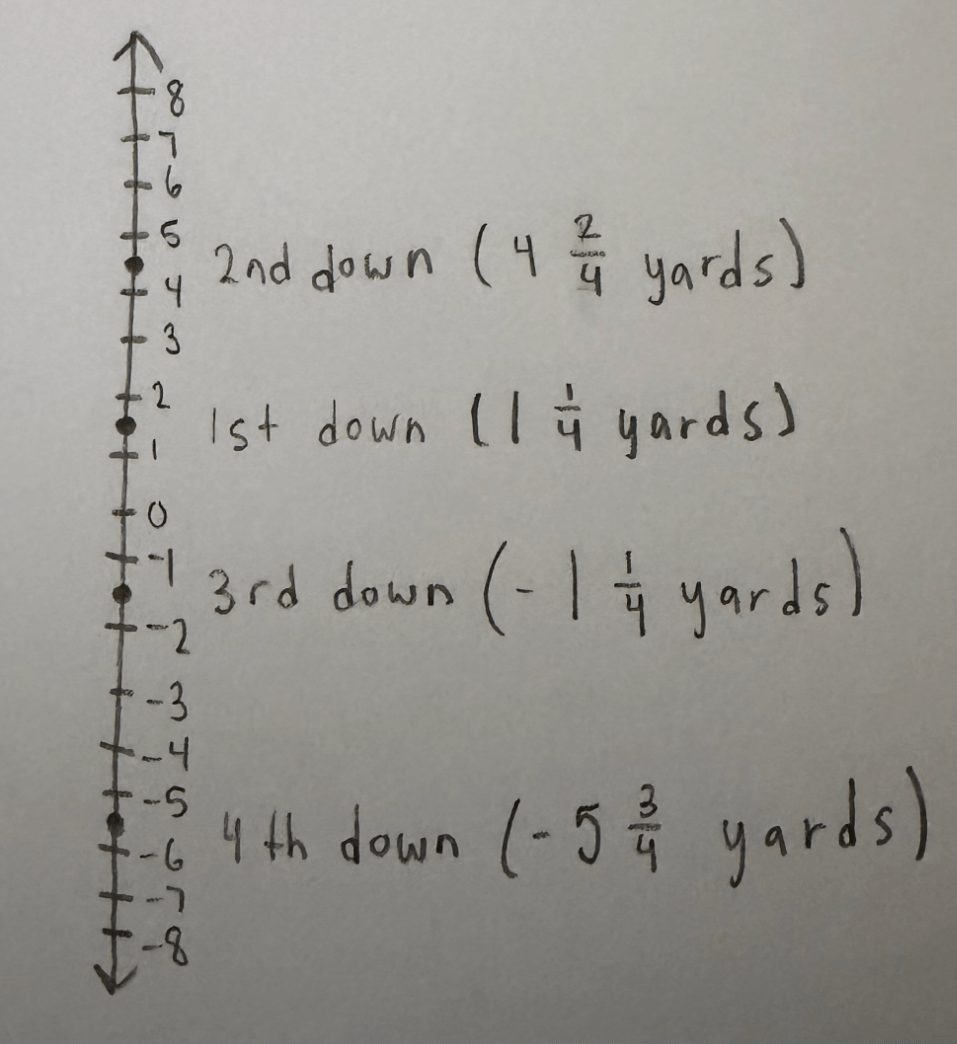 8
7
6
5
2nd down (4 2/4 yards)
4
3
2
1st down (1 1/4 yards)
1
0
-1
3rd down (-1 1/4 yards)
-2
-3
-4
-5
4th down (-5 3/4 yards)
-6
-7
-8